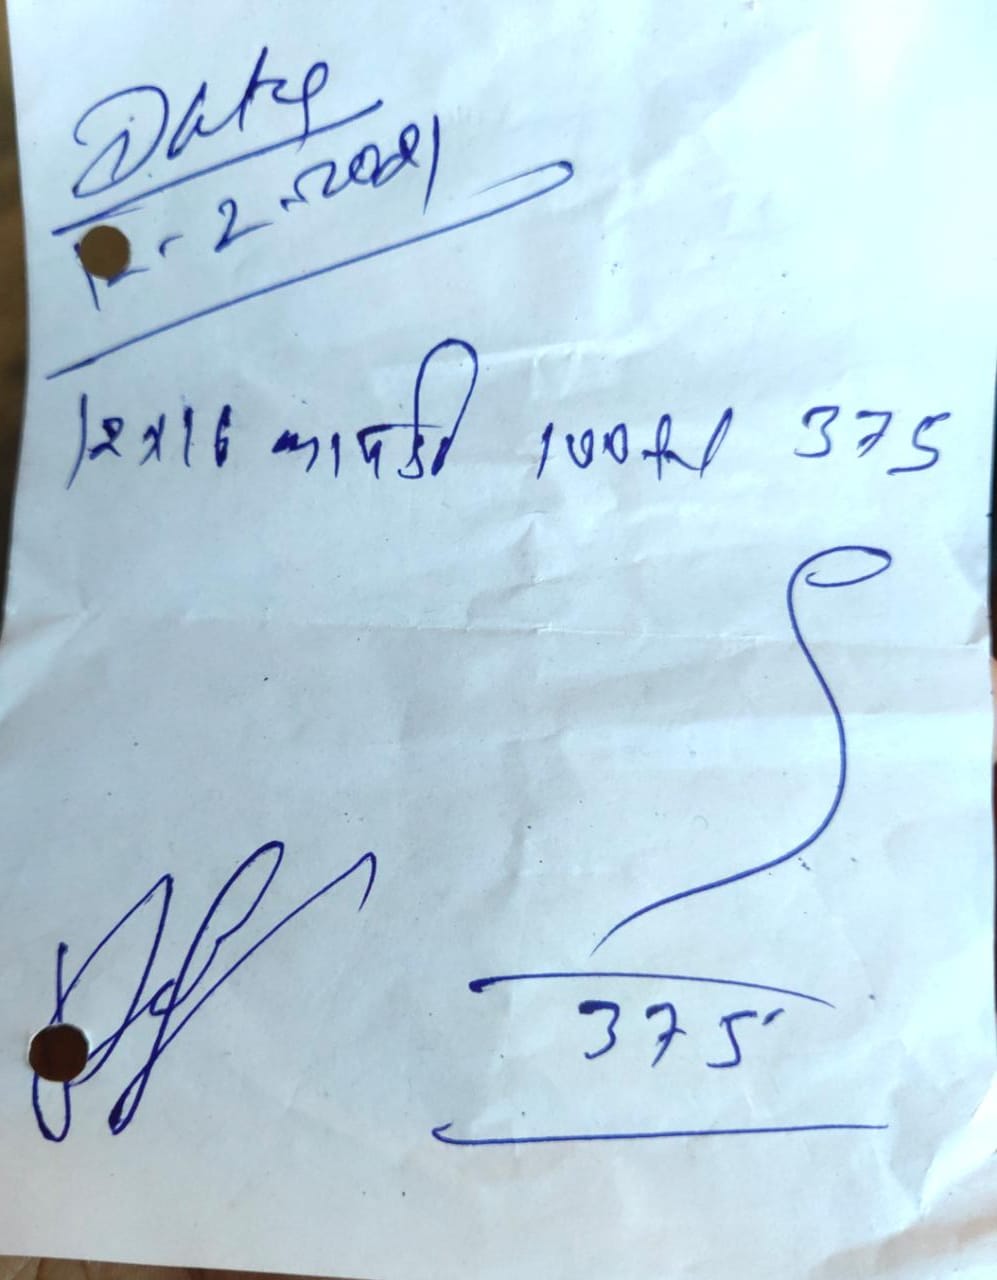 Date
12-2-2021
12x16 कापडी 100 नग 375
375